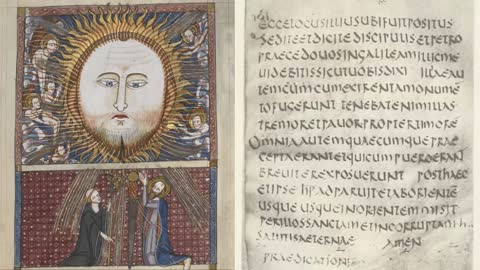 ECCELOCUSILLIUSUBIFUITPOSITUS
SEDITEETDICITEDISCIPULISETPETRO
PRAECEDOUOSINGALILEAMILLICME
UIDEBITISSICUTUOBISDIXI ILLAEAU
TEMCUMCUMEXIRENTAMONUMEN
TOFUGERUNT TENEBATENIMILLAS
TREMORETPAUORPROPTERTIMORE
OMNIAAUTEMQUAECUMQUEPRAE
CEPTAERANTETQUICUMPUEROERAN
BREUITEREXPOSUERUNT POSTHAEC
ETIPSE ADPARUITETABORIENTE
USQUEUSQUEINORIENTEMMISIT
PERILLOSSANCTAMETINCORRUPTAM
SALUTISAETERNAE AMEN
PRAEDICATIONIS